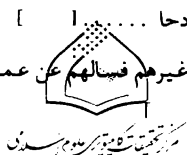 دحا . . . . . . [ ]
غيرهم فسالهم عن عمـ
مرکز تحقیقات کامپیوتری علوم اسلامی